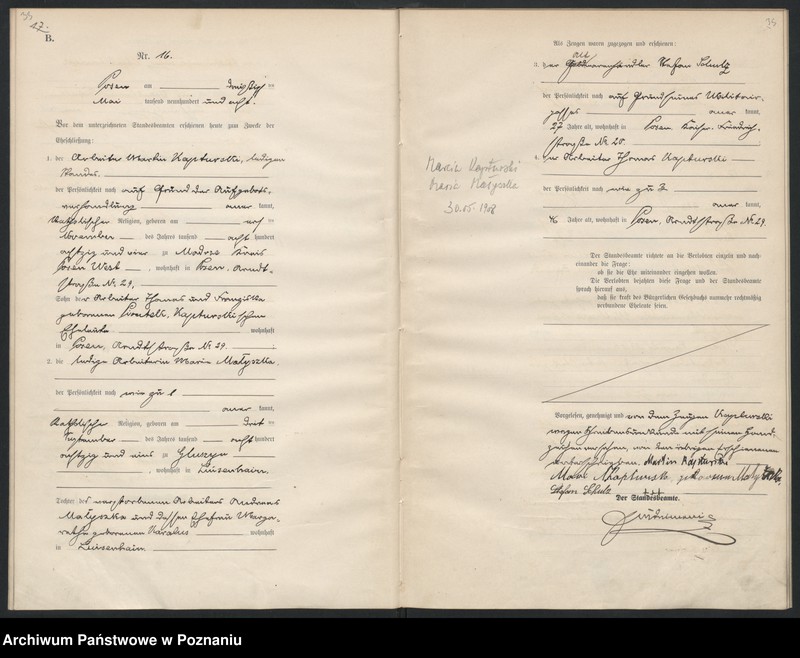 27.
B.
Nr. 16.
Posen am dreißigsten
Mai tausend neunhundert und acht.
Vor dem unterzeichneten Standesbeamten erschienen heute zum Zwecke der
Eheschließung:
1. der Arbeiter Martin Kapturski, ledigen
Standes.
der Persönlichkeit nach auf Grund der Aufgebots-
verhandlung aner kannt,
katholischer Religion, geboren am
November des Jahres tausend acht hundert
achtzig und vier zu Kreis
Posen West, wohnhaft in Posen, Arndt-
straße Nr. 29.
Sohn der Arbeiter Thomas und Franziska
geborenen Kapturskischen
Eheleute wohnhaft
in Posen, Arndtstraße Nr. 29.
2. die ledige Arbeiterin Maria Matyszka
der Persönlichkeit nach wie zu 1
aner kannt,
katholischer Religion, geboren am
September des Jahres tausend acht hundert
achtzig und eins zu
, wohnhaft in Luisenhain.
Tochter des verstorbenen Arbeiters Andreas
Matyszka und dessen Ehefrau Marga-
retha geborenen wohnhaft
in Luisenhain.
Als Zeugen waren zugezogen und erschienen:
3. der händler Stefan
der Persönlichkeit nach auf Grund seines Militair-
passes aner kannt,
27 Jahre alt, wohnhaft in Posen, Friedrich-
straße Nr. 20.
4. der Arbeiter Thomas Kapturski
der Persönlichkeit nach wie zu 2
aner kannt,
46 Jahre alt, wohnhaft in Posen, Arndtstraße Nr. 29.
Der Standesbeamte richtete an die Verlobten einzeln und nach-
einander die Frage:
ob sie die Ehe miteinander eingehen wollen.
Die Verlobten bejahten diese Frage und der Standesbeamte
sprach hierauf aus,
daß sie kraft des Bürgerlichen Gesetzbuchs nunmehr rechtmäßig
verbundene Eheleute seien.
Kapturski
Maria Matyszka
30.05.1908
Vorgelesen, genehmigt und von dem Zeugen Kapturski
wegen Schreibensunkunde mit seinem Hand-
zeichen versehen, von den übrigen Erschienenen
unterschrieben. Martin Kapturski
+++
Der Standesbeamte.
Archiwum Państwowe w Poznaniu